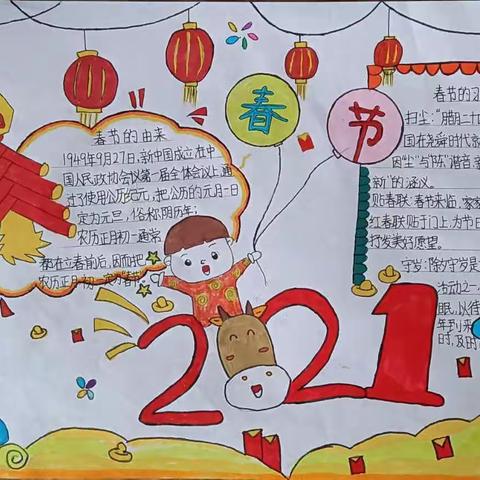 春节
春节的由来
1949年9月27日,新中国成立,在中
国人民政协会议第一届全体会议上,通
过了使用公历纪元,把公历的元月一日
定为元旦,俗称阳历年;
农历正月初一通常
都在立春前后,因而把
农历正月初一定为春节
春节的习
扫尘:"腊月二十
国在尧舜时代就
因"尘"与"陈"谐音,新
新"的涵义。
贴春联:春节来临,家家
红春联贴于门上,为节日
抒发美好愿望。
守岁:除夕守岁是
活动之一,
眠,以待
年到来
时,及时
2021